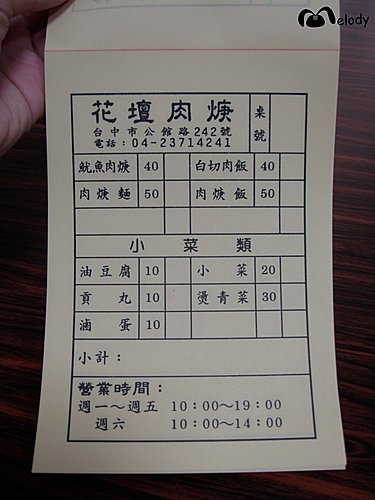 Melody
花壇肉焿
桌號
台中市公館路242號
電話：04-23714241
魷魚肉焿 40 白切肉飯 40
肉焿麵 50 肉焿飯 50
小菜類
油豆腐 10 小菜 20
貢丸 10 燙青菜 30
滷蛋 10
小計：
營業時間：
週一～週五 10：00～19：00
週六 10：00～14：00